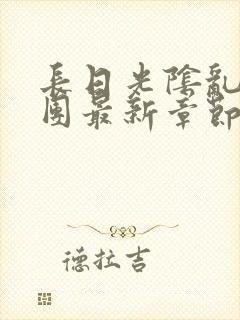 長日光陰亂
團最新章節
德拉吉